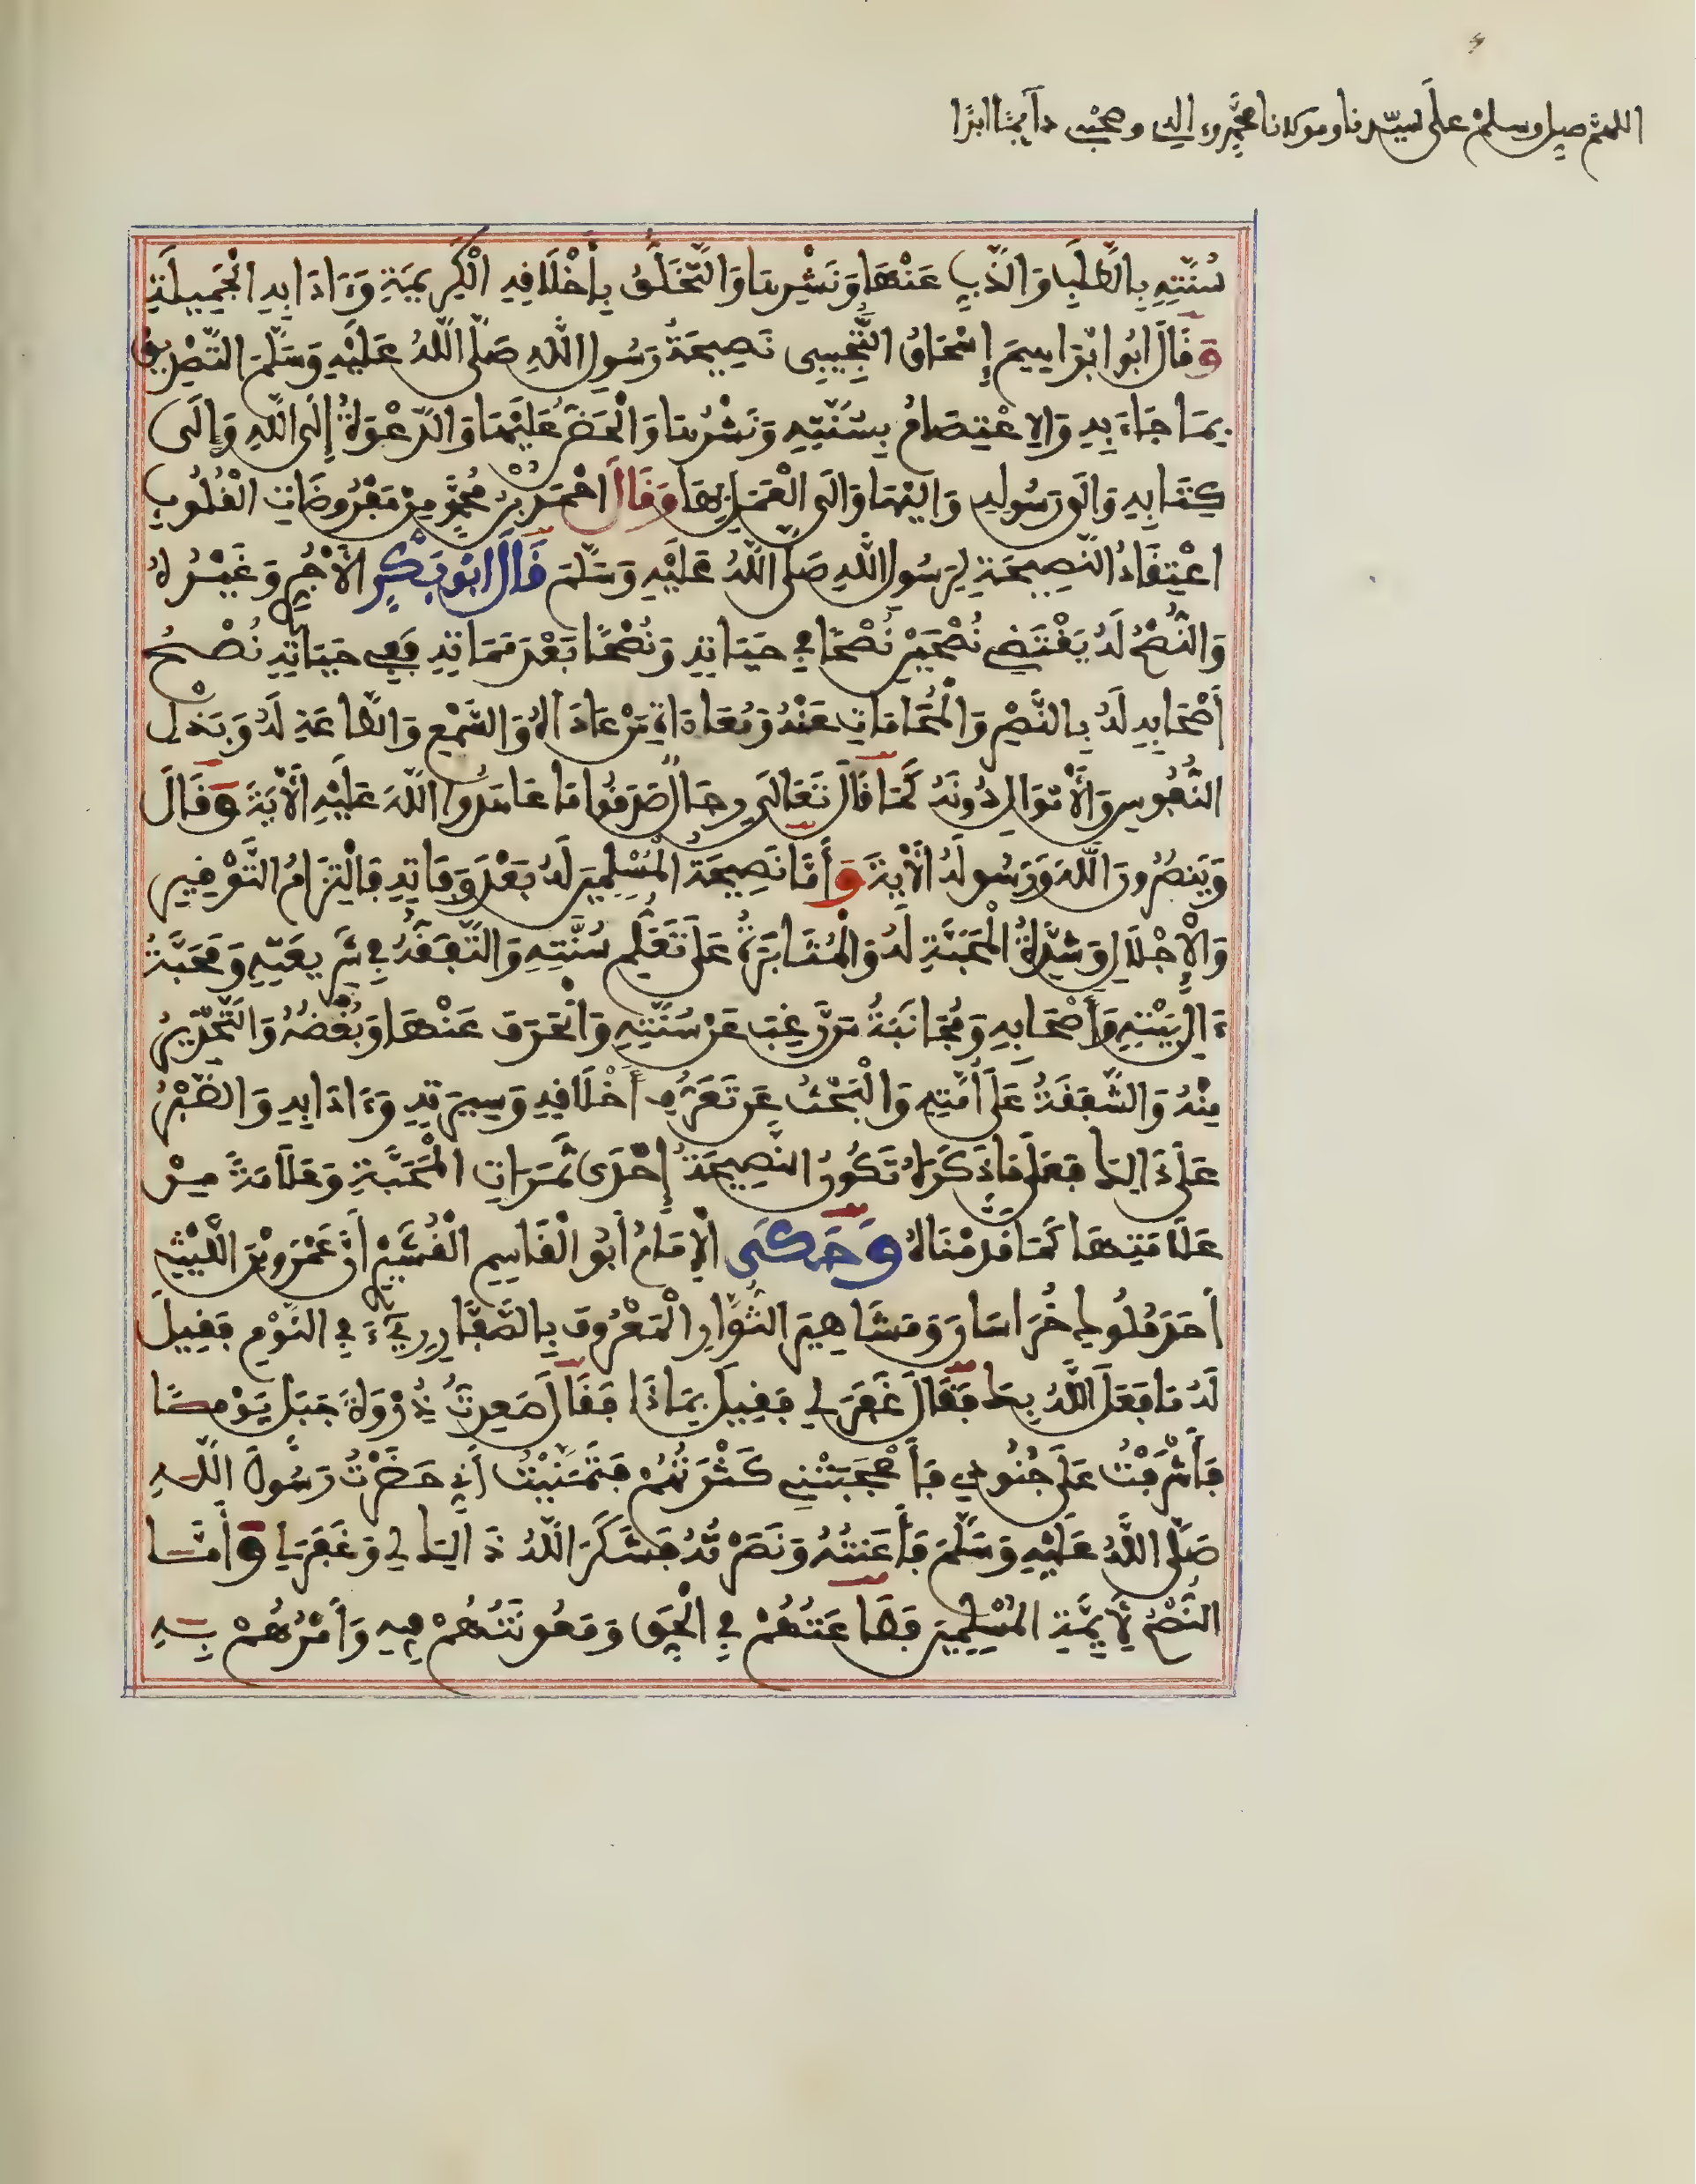 اللهم صل وسلم على سيدنا ومولانا محمد وءاله وصحبه دآيما ابدا
سُنَّتِهِ بِالطَّلَبِ وَالذَّبِّ عَنْهَا وَنَشْرِهَا وَالتَّخَلُّقُ بِأَخْلَافِهِ الْكَرِيمَةِ وَءَادَابِهِ الْجَمِيلَةِ
وَقَالَ ابُو ابْرَاهِيمَ إِسْحَاقُ التُّجِيبِى نَصِيحَةُ رَسُولِ اللَّهِ صَلَّى اللَّهُ عَلَيْهِ وَسَلَّمَ التَّصْدِيقُ
بِمَا جَاءَ بِهِ وَالِاعْتِصَامُ بِسُنَّتِهِ وَنَشْرُهَا وَالْحَضُّ عَلَيْهَا وَالدَّعْوَةُ إِلَى اللَّهِ وَإِلَى
كِتَابِهِ وَإِلَى رَسُولِهِ وَإِلَيْهَا وَإِلَى الْعَمَلِ بِهَا وَقَالَ احْمَدُ بْنُ مُحَمَّدٍ مِنْ مَفْرُوضَاتِ الْقُلُوبِ
اعْتِقَادُ النَّصِيحَةِ لِرَسُولِ اللَّهِ صَلَّى اللَّهُ عَلَيْهِ وَسَلَّمَ قَالَ ابُو بَكْرٍ الْأَجُرِّي وَغَيْرُهُ
وَالنُّصْحُ لَهُ يَقْتَضِي نُصْحَيْنِ نُصْحًا فِي حَيَاتِهِ وَنُصْحًا بَعْدَ مَمَاتِهِ فَفِي حَيَاتِهِ نُصْحُ
أَصْحَابِهِ لَهُ بِالنَّصْرِ وَالْمُحَامَاتِ عَنْهُ وَمُعَادَاةِ مَنْ عَادَاهُ وَالسَّمْعِ وَالطَّاعَةِ لَهُ وَبَذْلِ
النُّفُوسِ وَالْأَمْوَالِ دُونَهُ كَمَا قَالَ تَعَالَى رِجَالٌ صَدَقُوا مَا عَاهَدُوا اللَّهَ عَلَيْهِ الْأَيَةَ وَقَالَ
وَيَنصُرُونَ اللَّهَ وَرَسُولَهُ الْأَيَةَ وَأَمَّا نَصِيحَةُ الْمُسْلِمِينَ لَهُ بَعْدَ وَفَاتِهِ فَالْتِزَامُ التَّوْقِيرِ
وَالْإِجْلَالِ وَشِدَّةُ الْمَحَبَّةِ لَهُ وَالْمُثَابَرَةُ عَلَى تَعَلُّمِ سُنَّتِهِ وَالتَّفَقُّهُ فِي شَرِيعَتِهِ وَمَحَبَّةُ
ءَالِ بَيْتِهِ وَأَصْحَابِهِ وَمُجَانَبَةُ مَن رَّغِبَ عَنْ سُنَّتِهِ وَانْحَرَفَ عَنْهَا وَبُغْضُهُ وَالتَّحْذِيرُ
مِنْهُ وَالشَّفَقَةُ عَلَى أُمَّتِهِ وَالْبَحْثُ عَن تَعَرُّفِ أَخْلَاقِهِ وَسِيرَتِهِ وَءَادَابِهِ وَالصَّبْرُ
عَلَى ذَالِكَ فَعَلَى مَا ذَكَرَهُ تَكُونُ النَّصِيحَةُ إِحْدَى ثَمَرَاتِ الْمَحَبَّةِ وَعَلَامَةً مِنْ
عَلَامَتِهَا كَمَا قَدَّمْنَاهُ وَحَكَى الْإِمَامُ أَبُو الْقَاسِمِ الْقُشَيْرِيُّ أَنَّ عَمْرَو بْنَ اللَّيْثِ
أَحَدَ مُلُوكِ خُرَاسَانَ وَمَشَاهِيرِ الثُّوَّارِ الْمَعْرُوفِ بِالصَّفَّارِ رِيءَ فِي النَّوْمِ فَقِيلَ
لَهُ مَا فَعَلَ اللَّهُ بِكَ فَقَالَ غَفَرَ لِي فَقِيلَ بِمَاذَا فَقَالَ صَعِدتُّ ذُرْوَةَ جَبَلٍ يَوْمًا
فَأَشْرَفْتُ عَلَى جُنُودِي فَأَعْجَبَتْنِي كَثْرَتُهُمْ فَتَمَنَّيْتُ أَنِّي حَضَرْتُ رَسُولَ اللَّهِ
صَلَّى اللَّهُ عَلَيْهِ وَسَلَّمَ فَأَعَنتُهُ وَنَصَرْتُهُ فَشَكَرَ اللَّهُ ذَالِكَ لِي وَغَفَرَ لِي وَأَمَّا
النُّصْحُ لِأَيِمَّةِ الْمُسْلِمِينَ فَطَاعَتُهُمْ فِي الْحَقِّ وَمَعُونَتُهُمْ فِيهِ وَأَمْرُهُمْ بِهِ